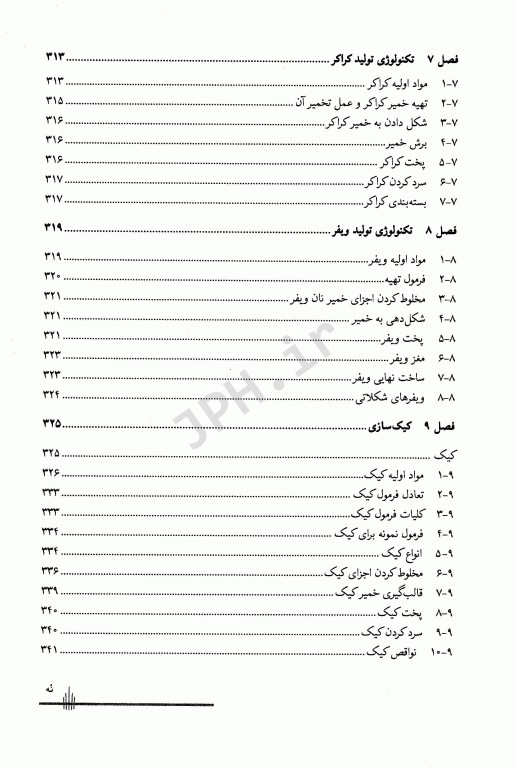 فصل ۷ تکنولوژی تولید کراکر ۳۱۳
۷-۱ مواد اولیه کراکر ۳۱۳
۷-۲ تهیه خمیر کراکر و عمل تخمیر آن ۳۱۵
۷-۳ شکل دادن به خمیر کراکر ۳۱۶
۷-۴ برش خمیر ۳۱۶
۷-۵ پخت کراکر ۳۱۶
۷-۶ سرد کردن کراکر ۳۱۷
۷-۷ بسته‌بندی کراکر ۳۱۷
فصل ۸ تکنولوژی تولید ویفر ۳۱۹
۸-۱ مواد اولیه ویفر ۳۱۹
۸-۲ فرمول تهیه ۳۲۰
۸-۳ مخلوط کردن اجزای خمیر نان ویفر ۳۲۱
۸-۴ شکل‌دهی به خمیر ۳۲۱
۸-۵ پخت ویفر ۳۲۱
۸-۶ مغز ویفر ۳۲۳
۸-۷ ساخت نهایی ویفر ۳۲۳
۸-۸ ویفرهای شکلاتی ۳۲۴
JPH.ir
فصل ۹ کیک‌سازی ۳۲۵
کیک ۳۲۵
۹-۱ مواد اولیه کیک ۳۲۶
۹-۲ تعادل فرمول کیک ۳۳۳
۹-۳ کلیات فرمول کیک ۳۳۳
۹-۴ فرمول نمونه برای کیک ۳۳۴
۹-۵ انواع کیک ۳۳۴
۹-۶ مخلوط کردن اجزای کیک ۳۳۶
۹-۷ قالب‌گیری خمیر کیک ۳۳۹
۹-۸ پخت کیک ۳۴۰
۹-۹ سرد کردن کیک ۳۴۰
۹-۱۰ نواقص کیک ۳۴۱
نه